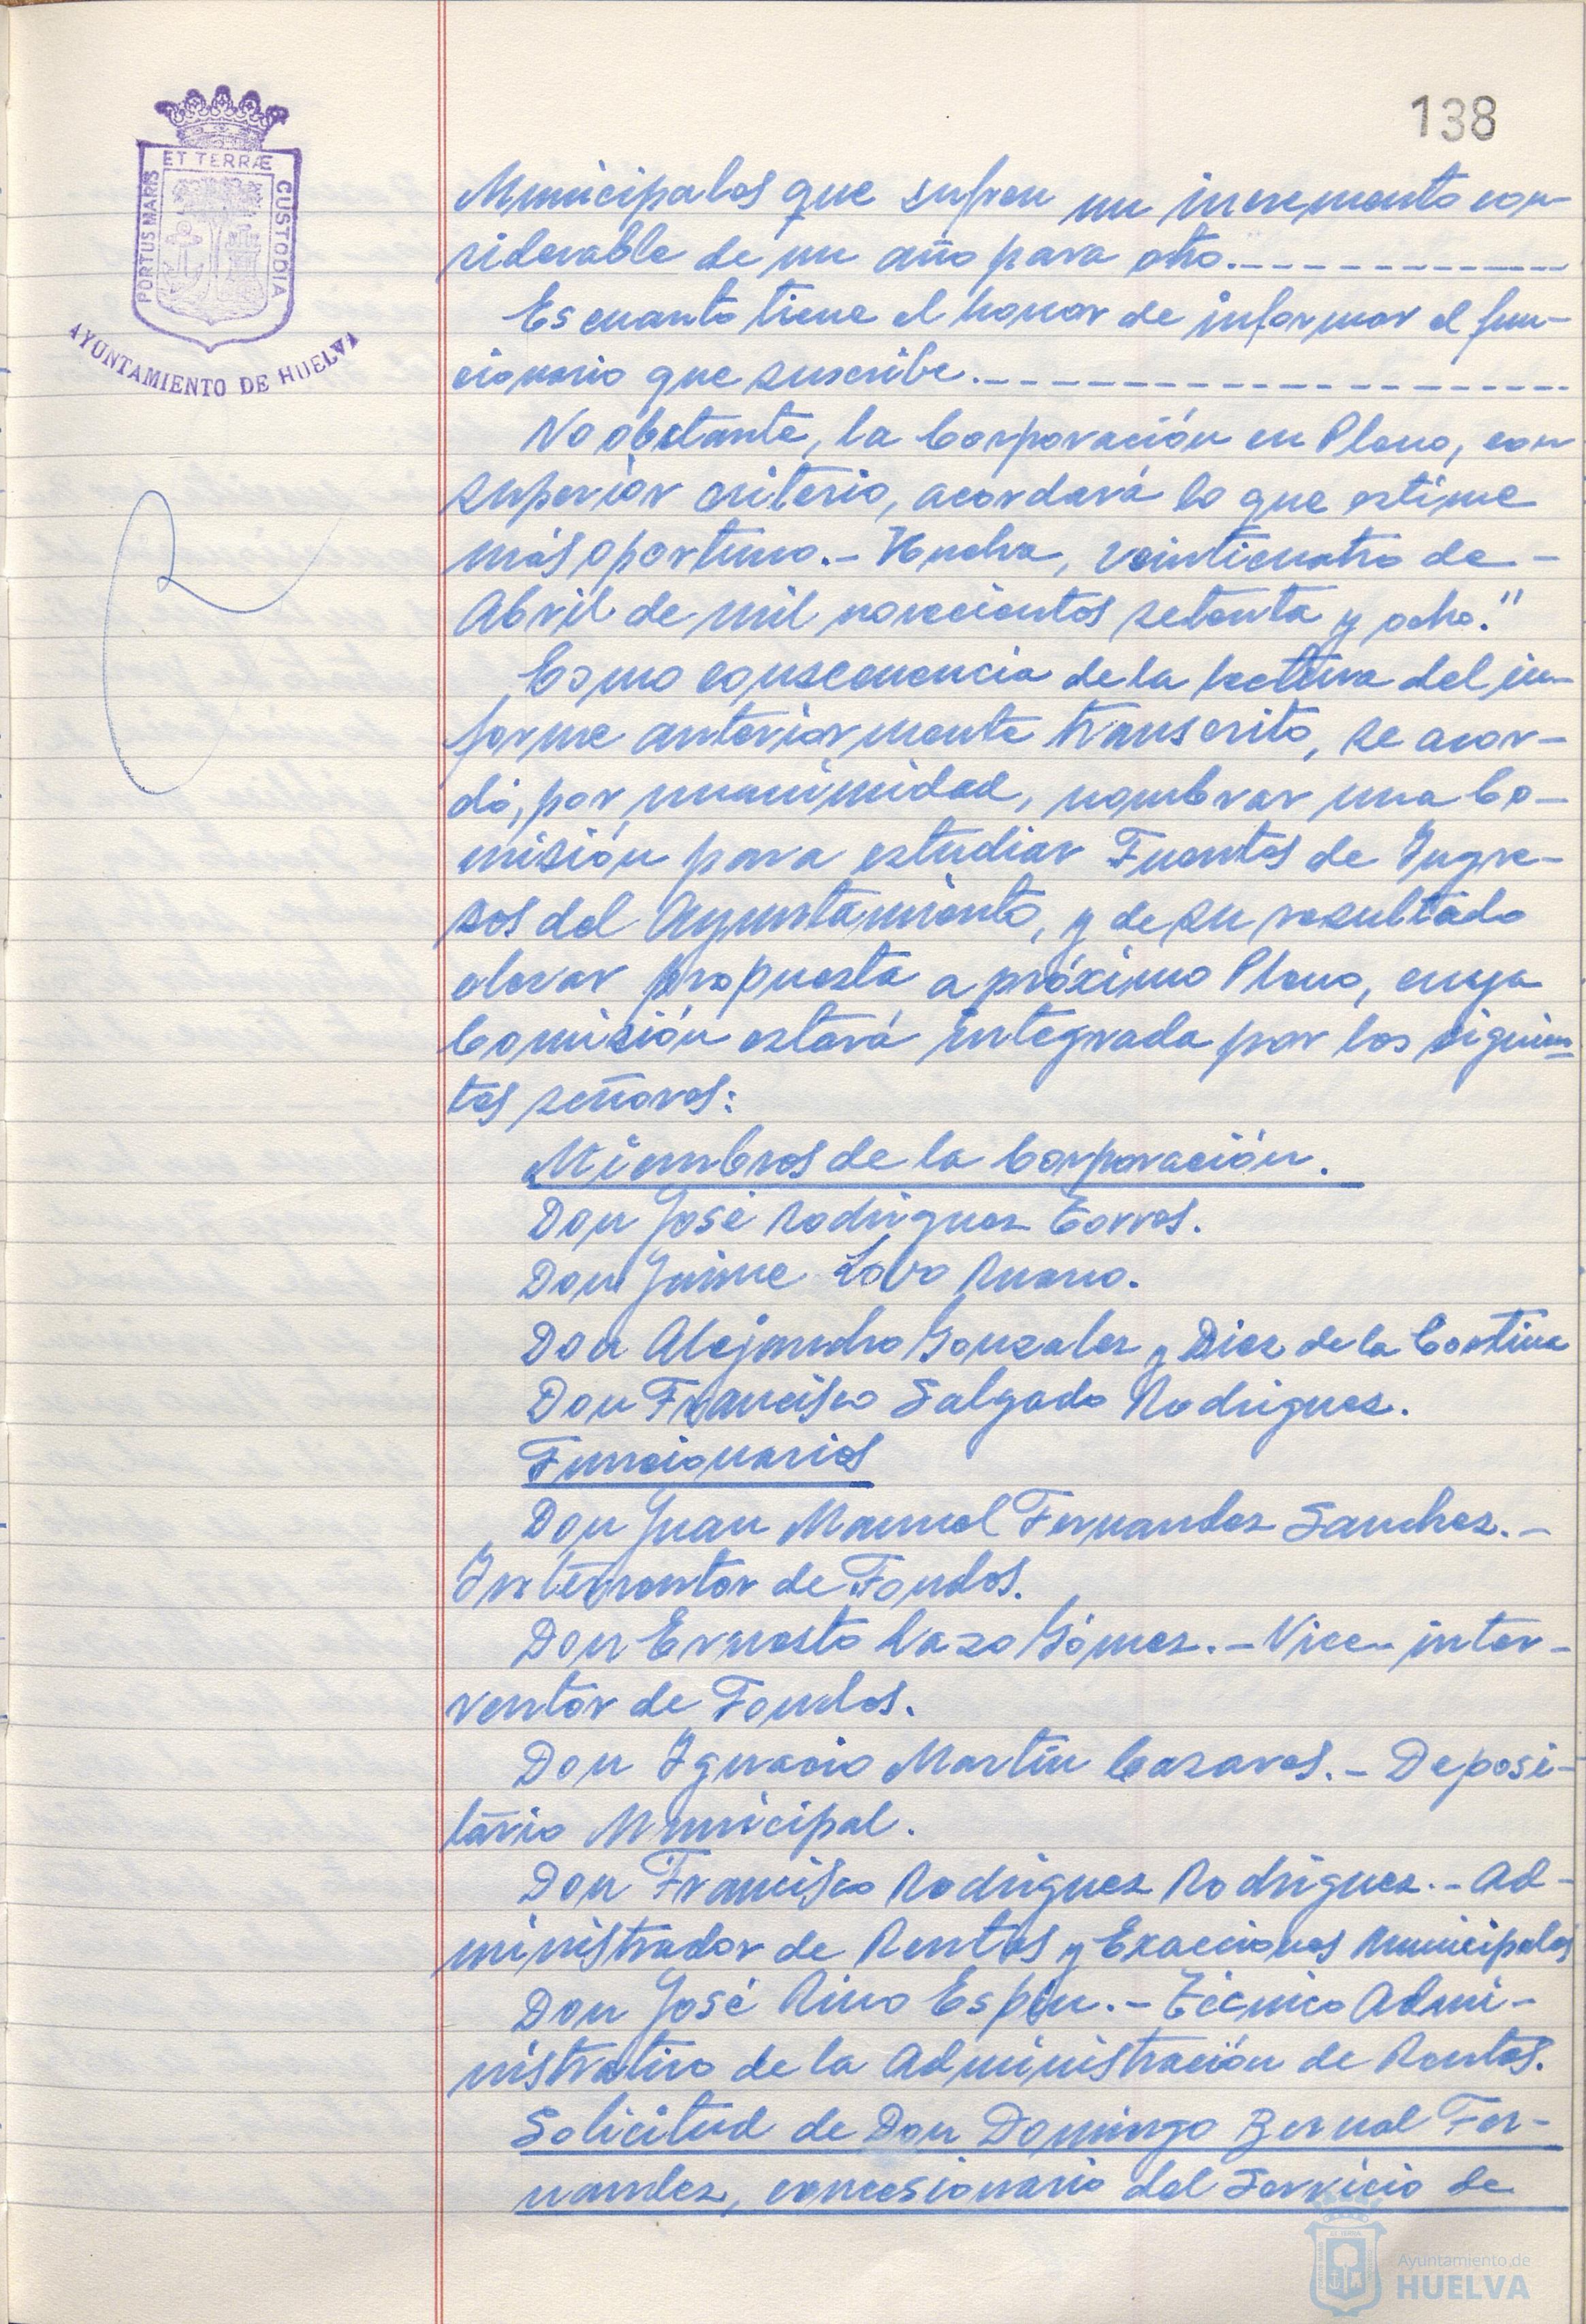 138
ET TERRÆ
PORTUS MARIS
CUSTODIA
AYUNTAMIENTO DE HUELVA
Municipales que sufren un incremento con-
siderable de un año para otro.-
Es cuanto tiene el honor de informar el fun-
cionario que suscribe.-
No obstante, la Corporación en Pleno, con
superior criterio, acordará lo que estime
más oportuno.- Huelva, veinticuatro de -
Abril de mil novecientos setenta y ocho."
Como consecuencia de la lectura del in-
forme anteriormente transcrito, se acor-
dó, por unanimidad, nombrar una Co-
misión para estudiar Fuentes de Ingre-
sos del Ayuntamiento, y de su resultado
elevar propuesta a próximo Pleno, cuya
Comisión estará integrada por los siguien-
tes señores:
Miembros de la Corporación.
Don José Rodriguez Torres.
Don Jaime Lobo Ruano.
Don Alejandro Gonzalez y Diez de la Cortina
Don Francisco Salgado Rodriguez.
Funcionarios
Don Juan Manuel Fernandez Sanchez.-
Interventor de Fondos.
Don Ernesto Lazo Gómez.- Vice-inter-
ventor de Fondos.
Don Ignacio Martín Cazares.- Deposi-
tario Municipal.
Don Francisco Rodriguez Rodriguez.- Ad-
ministrador de Rentas y Exacciones Municipales
Don José Rino Espin.- Técnico Admi-
nistrativo de la Administración de Rentas.
Solicitud de Don Domingo Bernal Fer-
nandez, concesionario del Servicio de
Ayuntamiento de
HUELVA